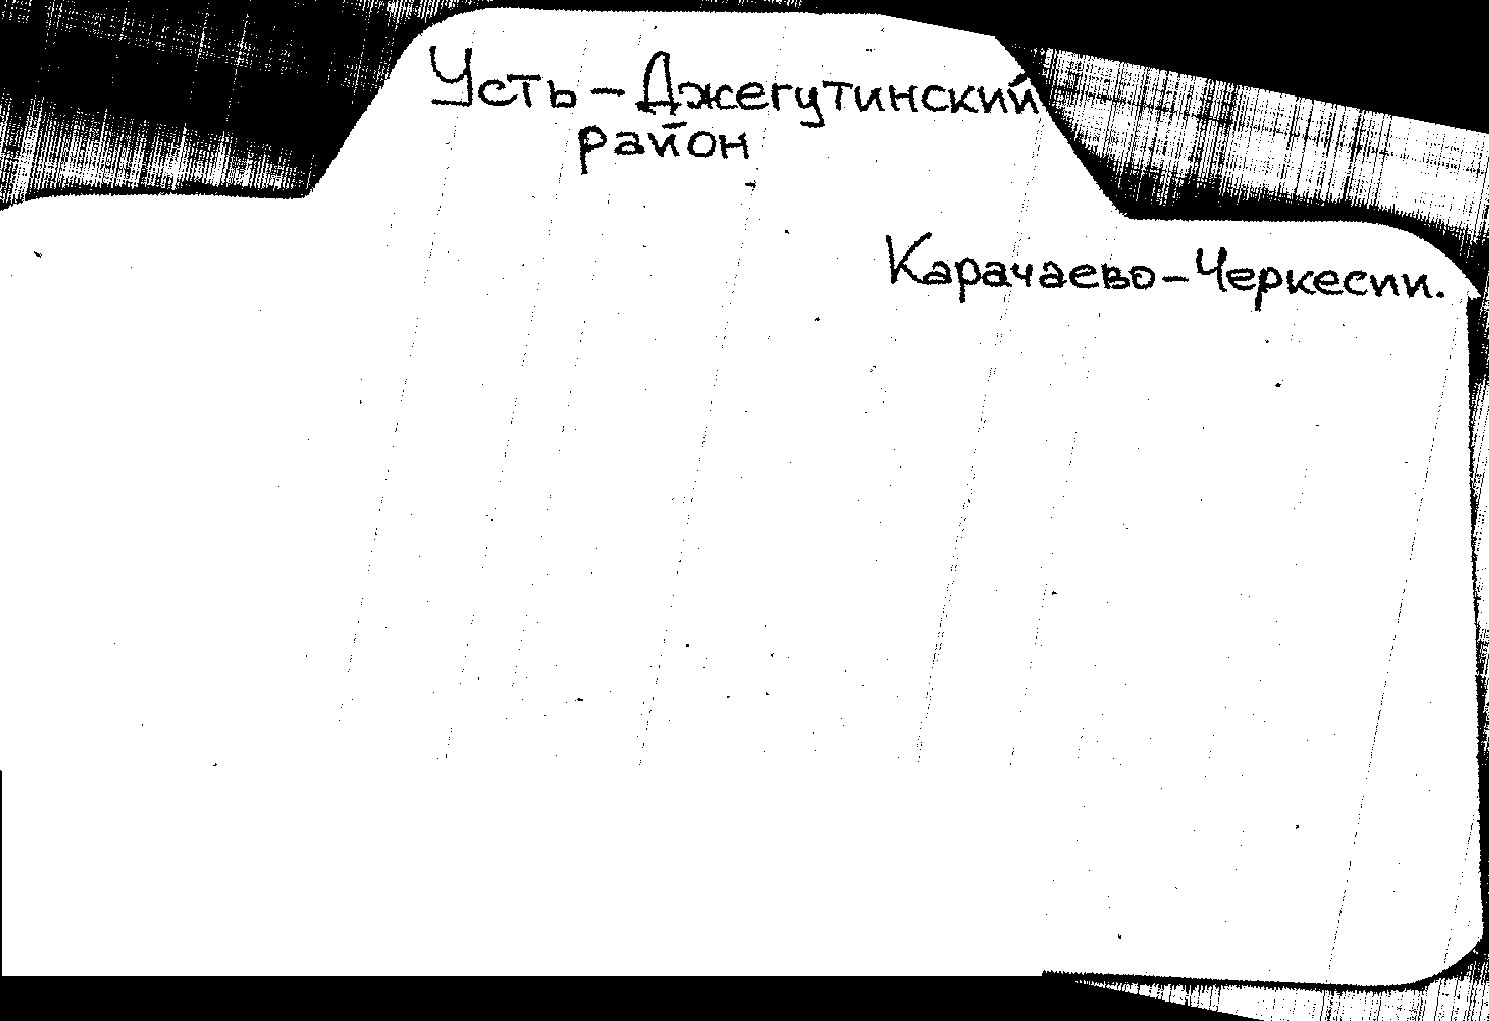 Усть-Джегутинский
район
Карачаево-Черкесии.